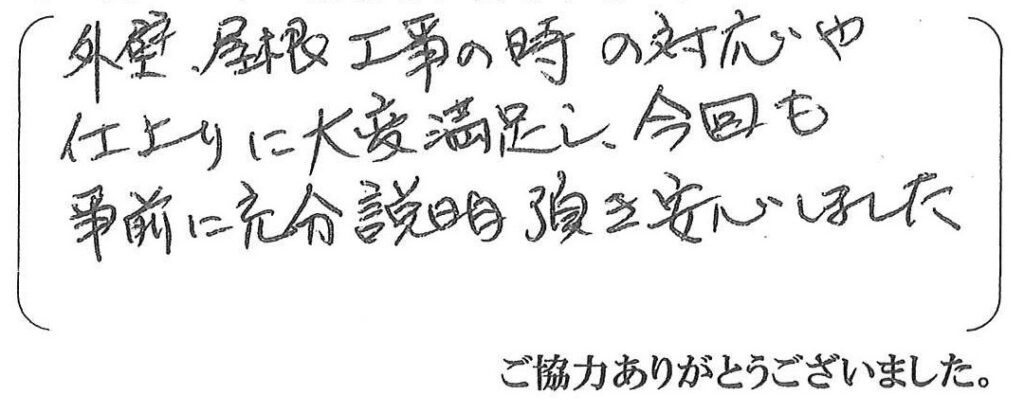 外壁、屋根工事の時の対応や
仕上りに大変満足し、今回も
事前に充分説明頂き安心しました
ご協力ありがとうございました。